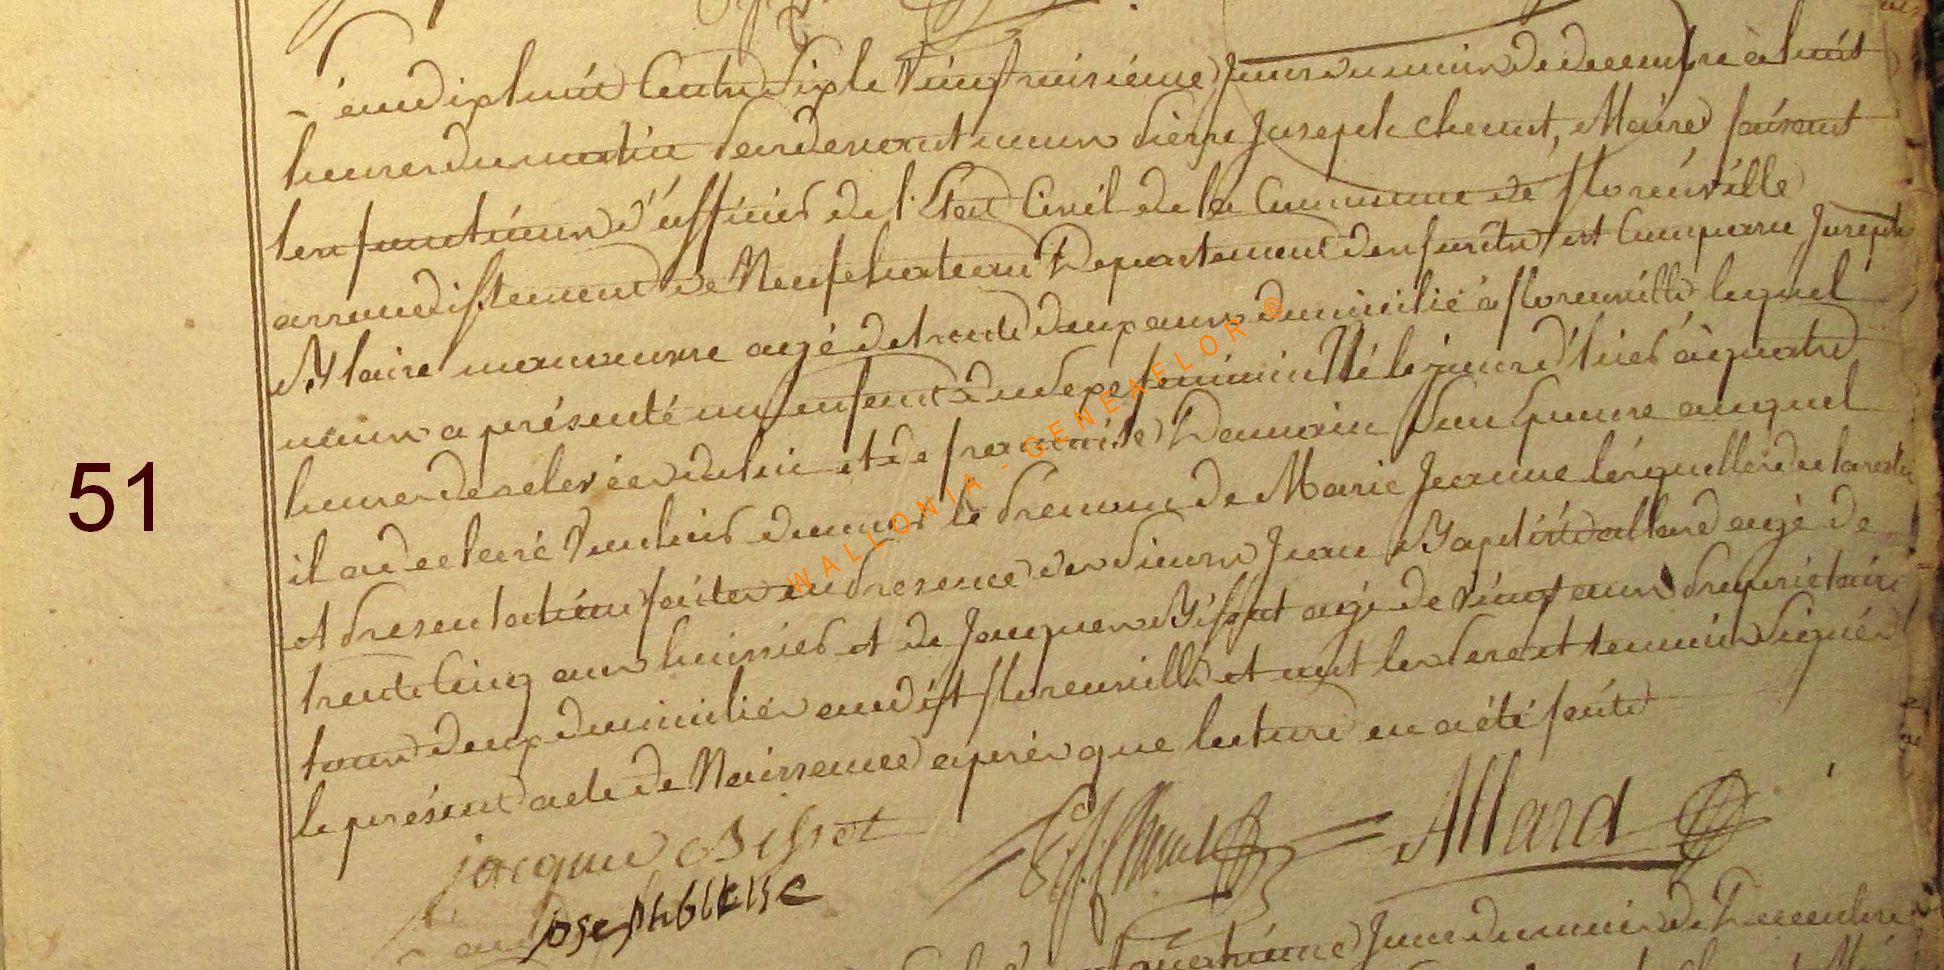 an dixhuit Cent Sept le Vingtroisiéme Jour du mois de decembre à huit
heures du matin Pardevant nous Pierre Joseph chenot, Maire faisant
les fonctions d'officier de l'Etat Civil de la Commune de florenville
arrondissement de Neufchateau Departement des forêts est Comparu Joseph
Blaise manoeuvre agé de trente deux ans domicilié à florenville lequel
nous a présenté un enfant du sexe feminin Né le jour d'hier à quatre
heures de relevée de lui et de francoise Damain Son Epouse auquel
il a declaré Vouloir donner le Prenom de Marie Jeanne lesquelles declaration
et Presentation faites en Presence des Sieurs Jean Baptiste allard agé de
trente Cinq ans huissier et de Jacques Bissot agé de Vingt ans Proprietaire
tous deux domiciliés au dit florenville et ont les Pere et temoins Signés
le présent acte de Naissance après que lecture en a été faite
51
jacque Bissot
P. J. Chenot
Allard
Joseph blaise
an
Jour du mois de Decembre
WALLONIA - GENEAFLOR ®